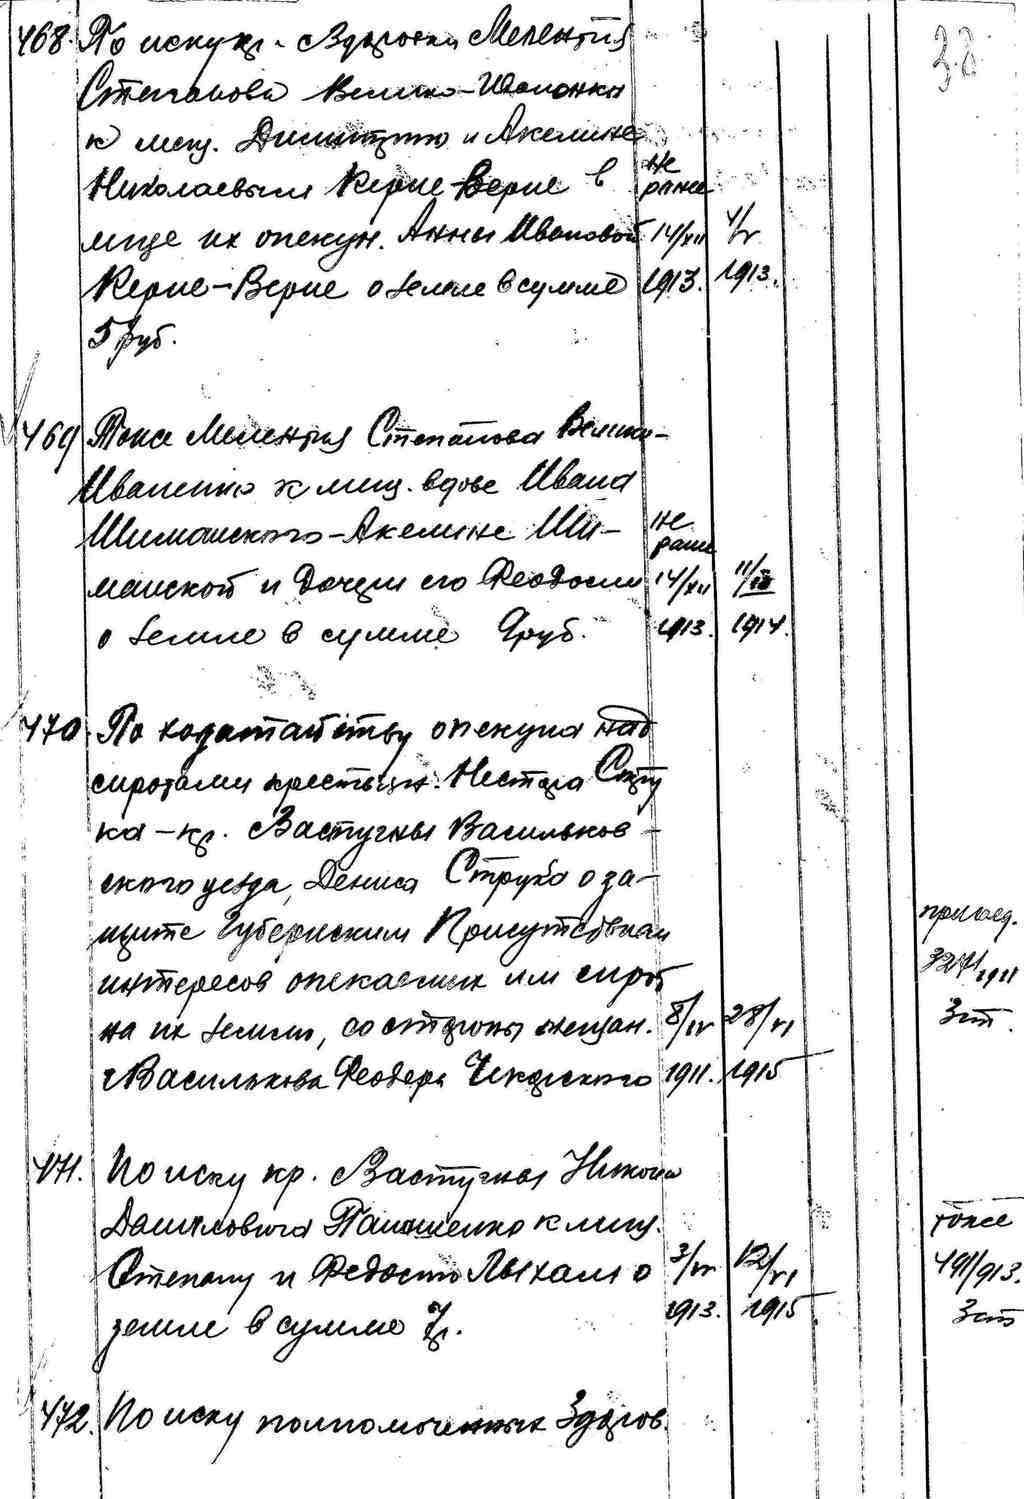 38
468. По иску кр. с. Здоровки Мелентия
Степанова Велико-Ивановки
к мещ. Димитрию и Акелине
Николаевым Керне-Верне в
лице их опекун. Анны Ивановой
Керне-Верне о земле в сумме
5 руб.
не ранее 14/XII 1913.
4/V 1913.
469 Тоже Мелентия Степанова Велико-
Иваненко к мещ. вдове Ивана
Шиманского-Акелине Ши-
манской и дочери его Феодосии
о земле в сумме 9 руб.
не ранее 14/XII 1913.
1914.
470. По ходатайству опекуна над
сиротами крестьян. Нестера Стру
ка-кр. с. Застугны Васильков-
ского уезда, Дениса Струка о за-
щите Губернским Присутствием
интересов опекаемых им сирот
на их земли, со стороны мещан.
г. Василькова Феодора
8/IV 1911.
28/VI 1915
присоед.
3271/1911
3 ст.
471. По иску кр. с. Застугны Никона
Даниловича к мещ.
Степану и Федосию Лыхам о
земле в сумме 7 р.
3/IV 1913.
12/VI 1915.
тоже
491/913.
3 ст
472. По иску полномоченных Здоров.